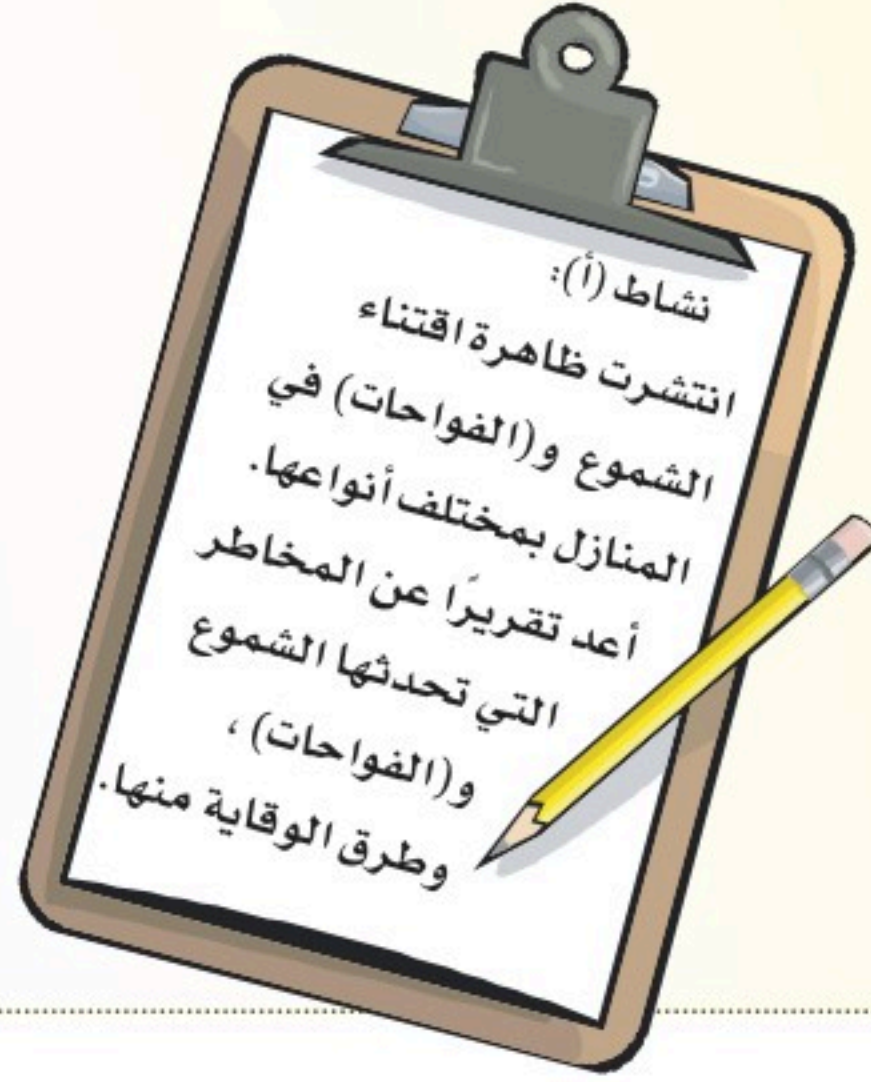 نشاط (أ):
انتشرت ظاهرة اقتناء
الشموع و(الفواحات) في
المنازل بمختلف أنواعها.
أعد تقريرًا عن المخاطر
التي تحدثها الشموع
و(الفواحات) ،
وطرق الوقاية منها.